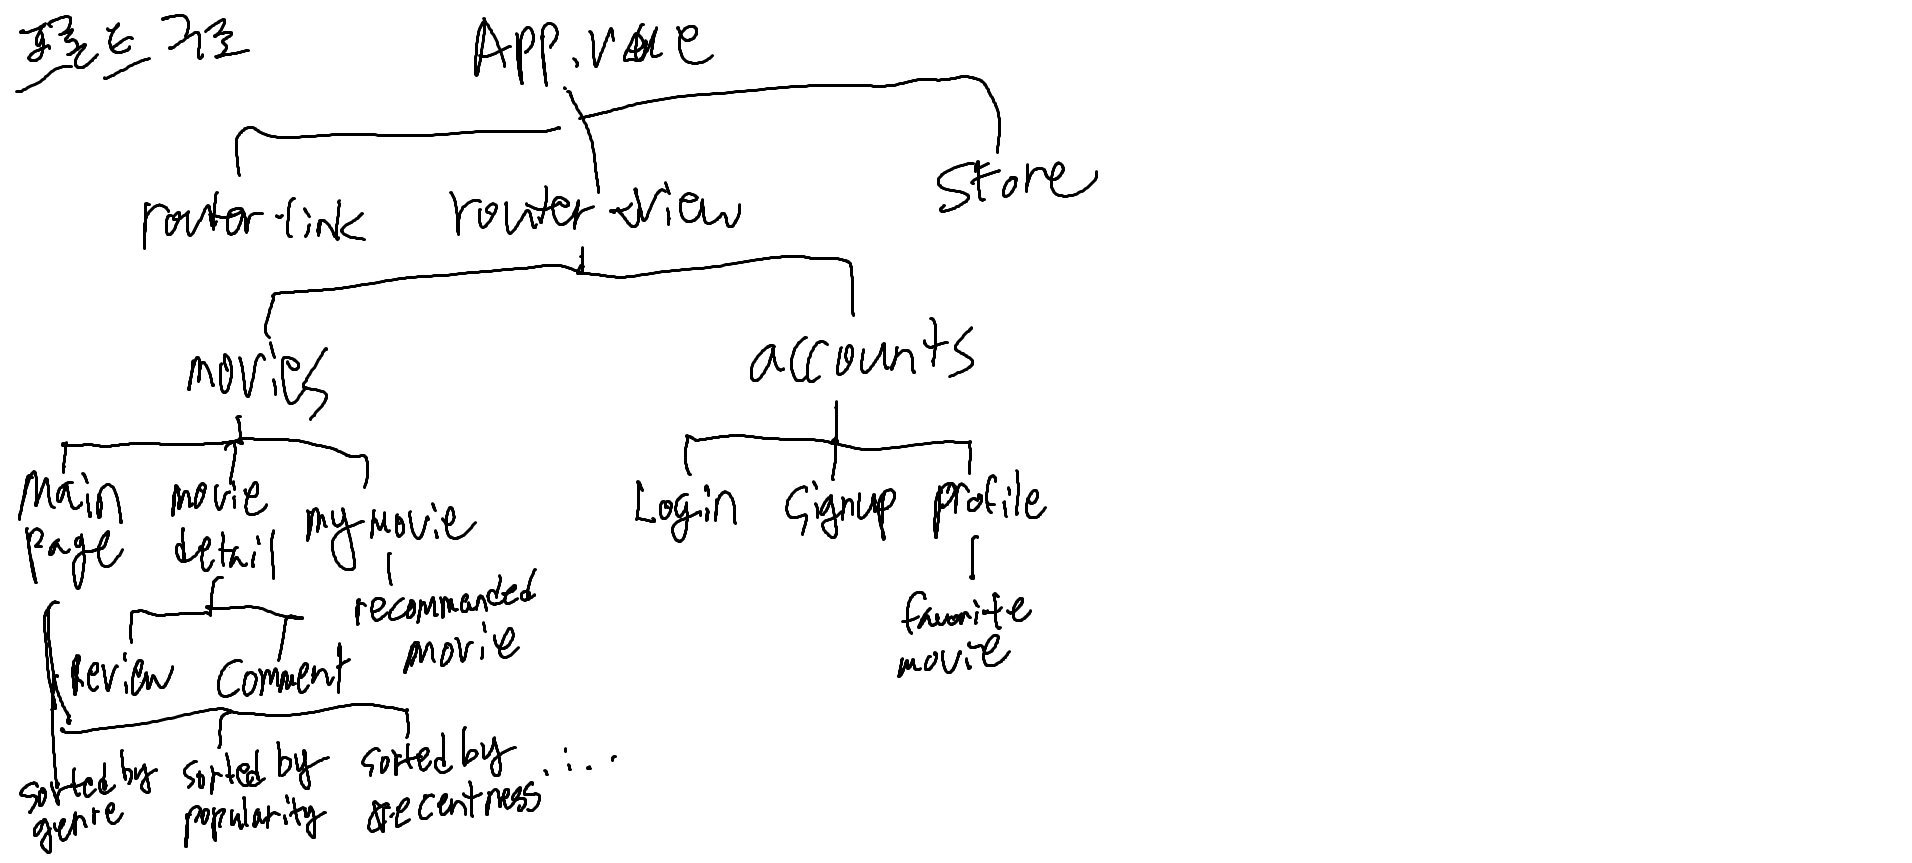 폴드 구조
App.vue
router-link router-view store
movies accounts
Main page
movie detail
my movie
Login signup profile
recommanded movie
favorite movie
Review comment
sorted by genre
sorted by popularity
sorted by recentness
.....